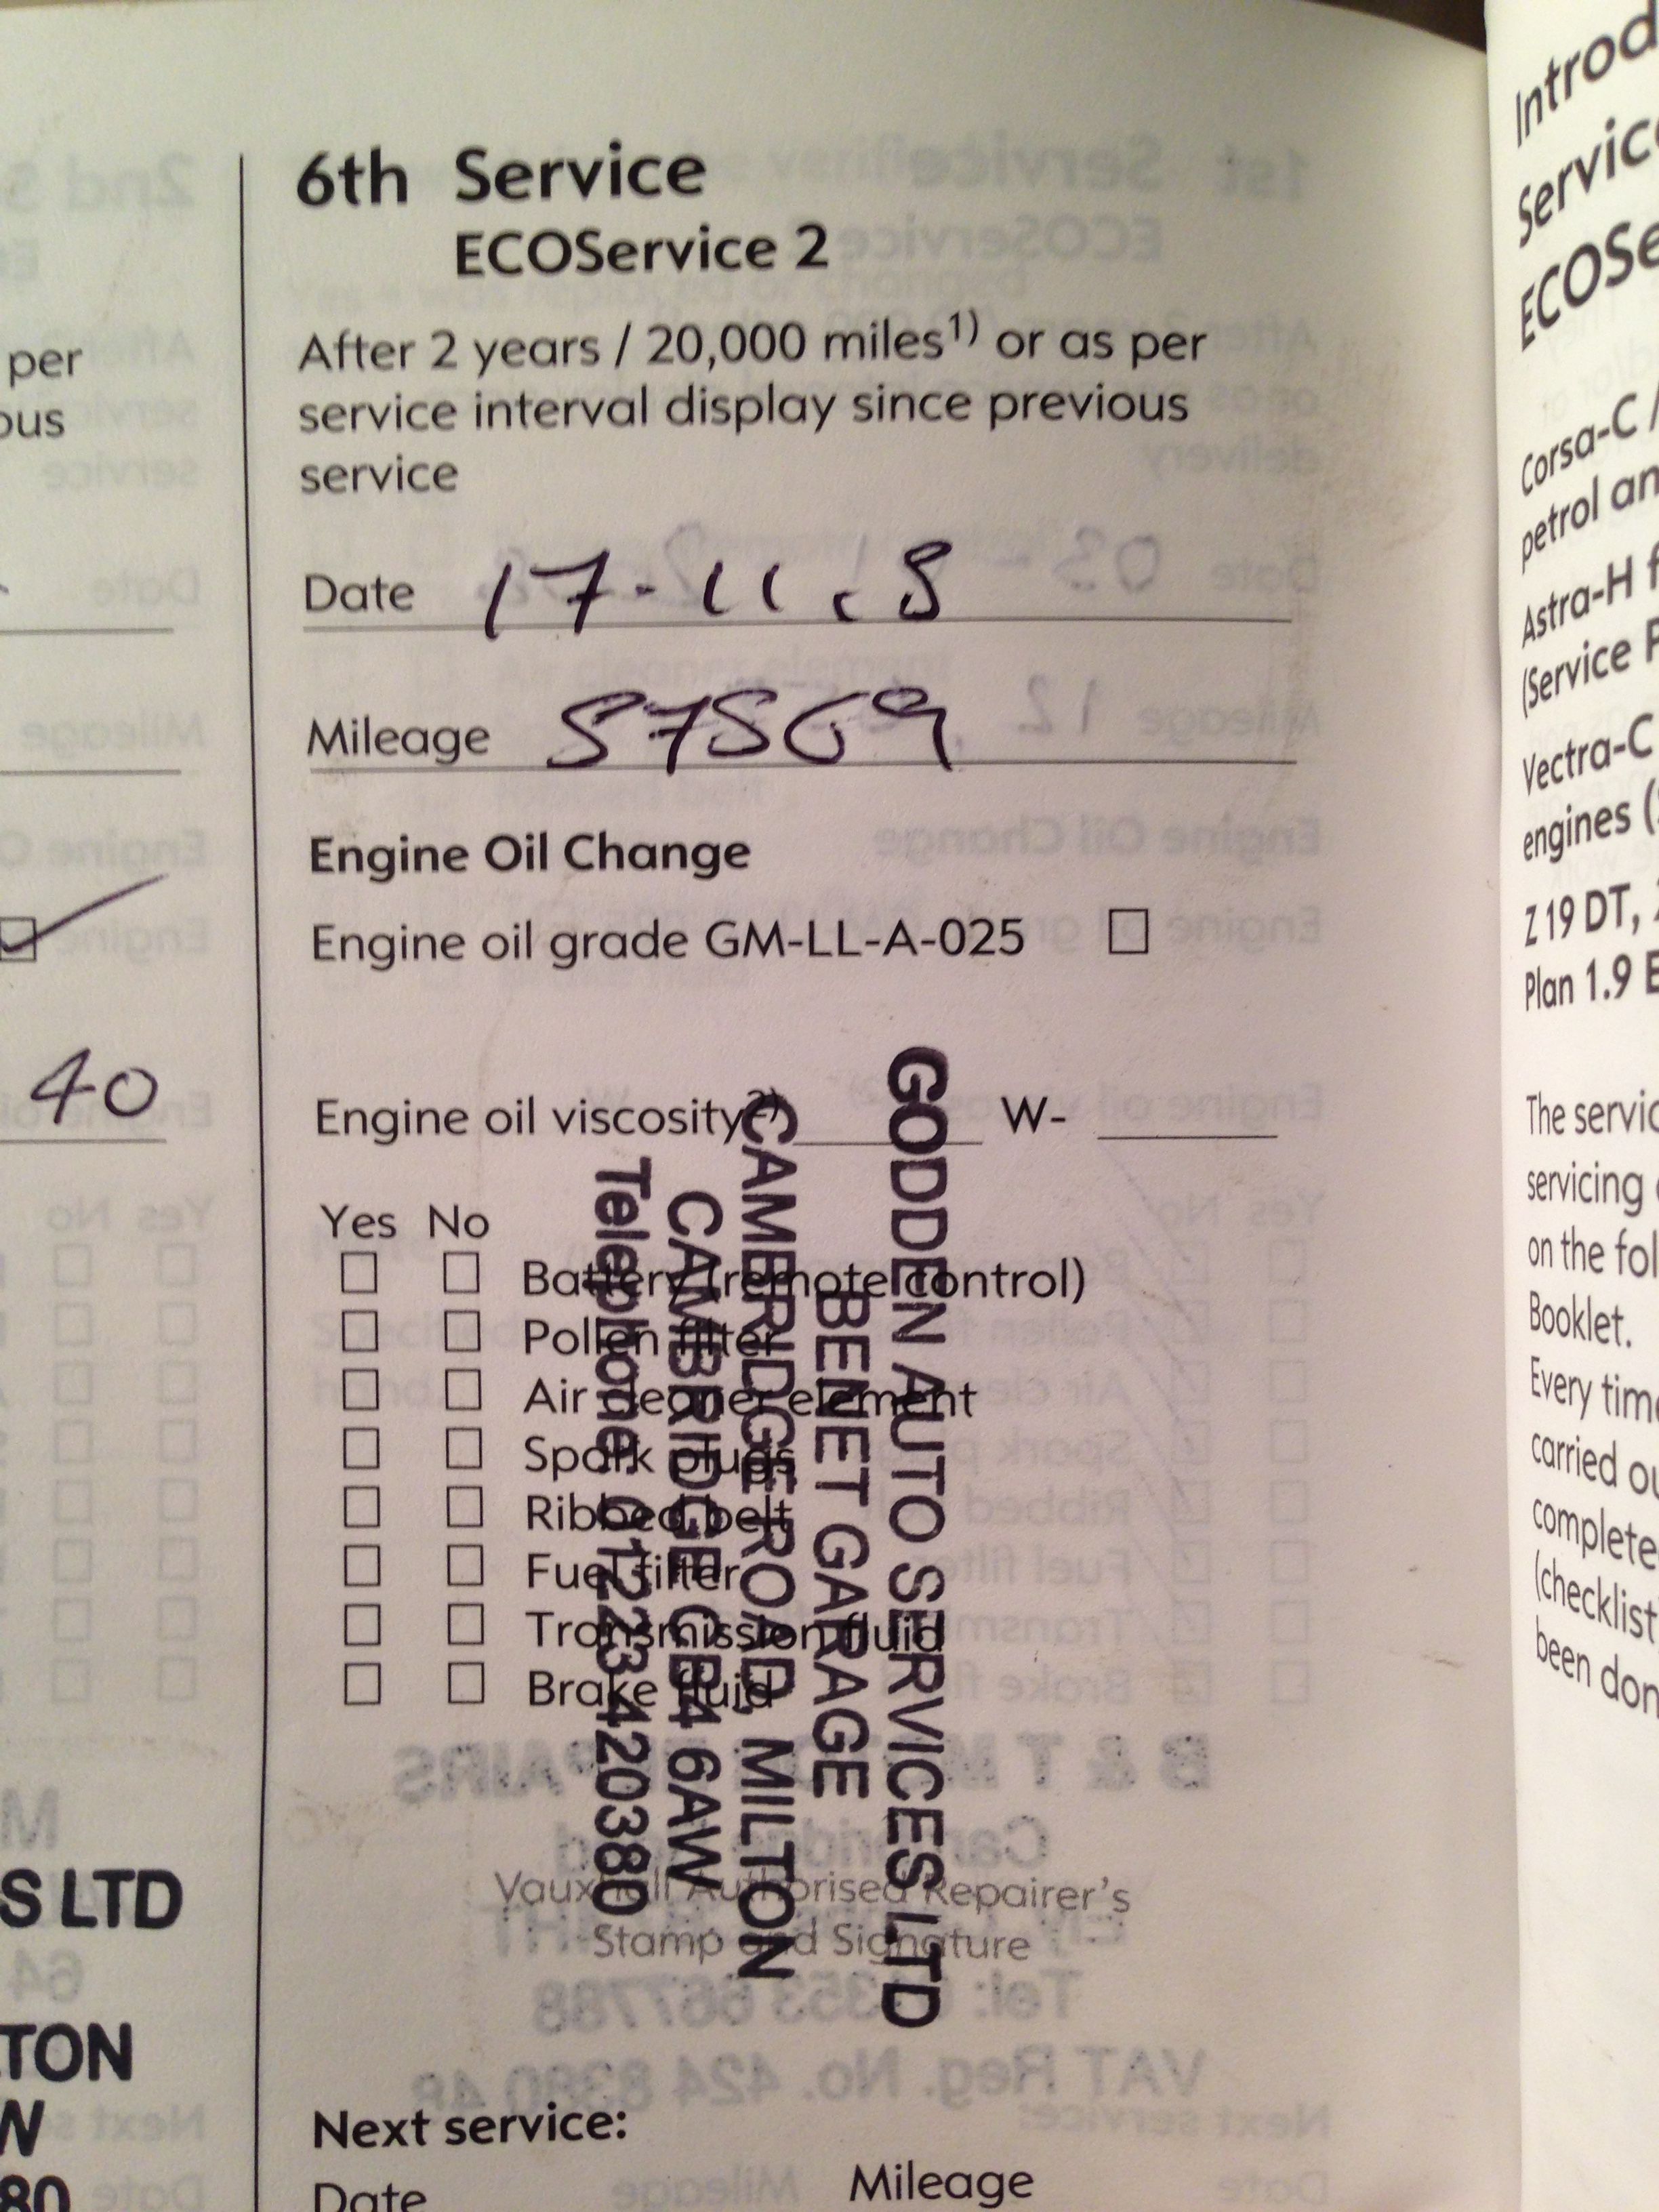 6th Service
ECOService 2
After 2 years / 20,000 miles1) or as per
service interval display since previous
service
Date 17-11.
Mileage 57569
Engine Oil Change
Engine oil grade GM-LL-A-025
Engine oil viscosity2) W-
Yes No
Battery (remote control)
Pollen filter
Air cleaner element
Spark plugs
Ribbed belt
Fuel filter
Transmission fluid
Brake fluid
GODDEN AUTO SERVICES LTD
BENET GARAGE
CAMBRIDGE ROAD, MILTON
CAMBRIDGE CB4 6AW
Telephone: 01223 420380
Vauxhall Authorised Repairer's
Stamp and Signature
Next service:
Date Mileage
per
40
S LTD
TON
W
80
Corsa-C /
petrol
Astra-H
(Service
Vectra-C
engines
Z 19 DT,
Plan 1.9
The
servicing
on the
Booklet.
Every
carried
(checklist
been